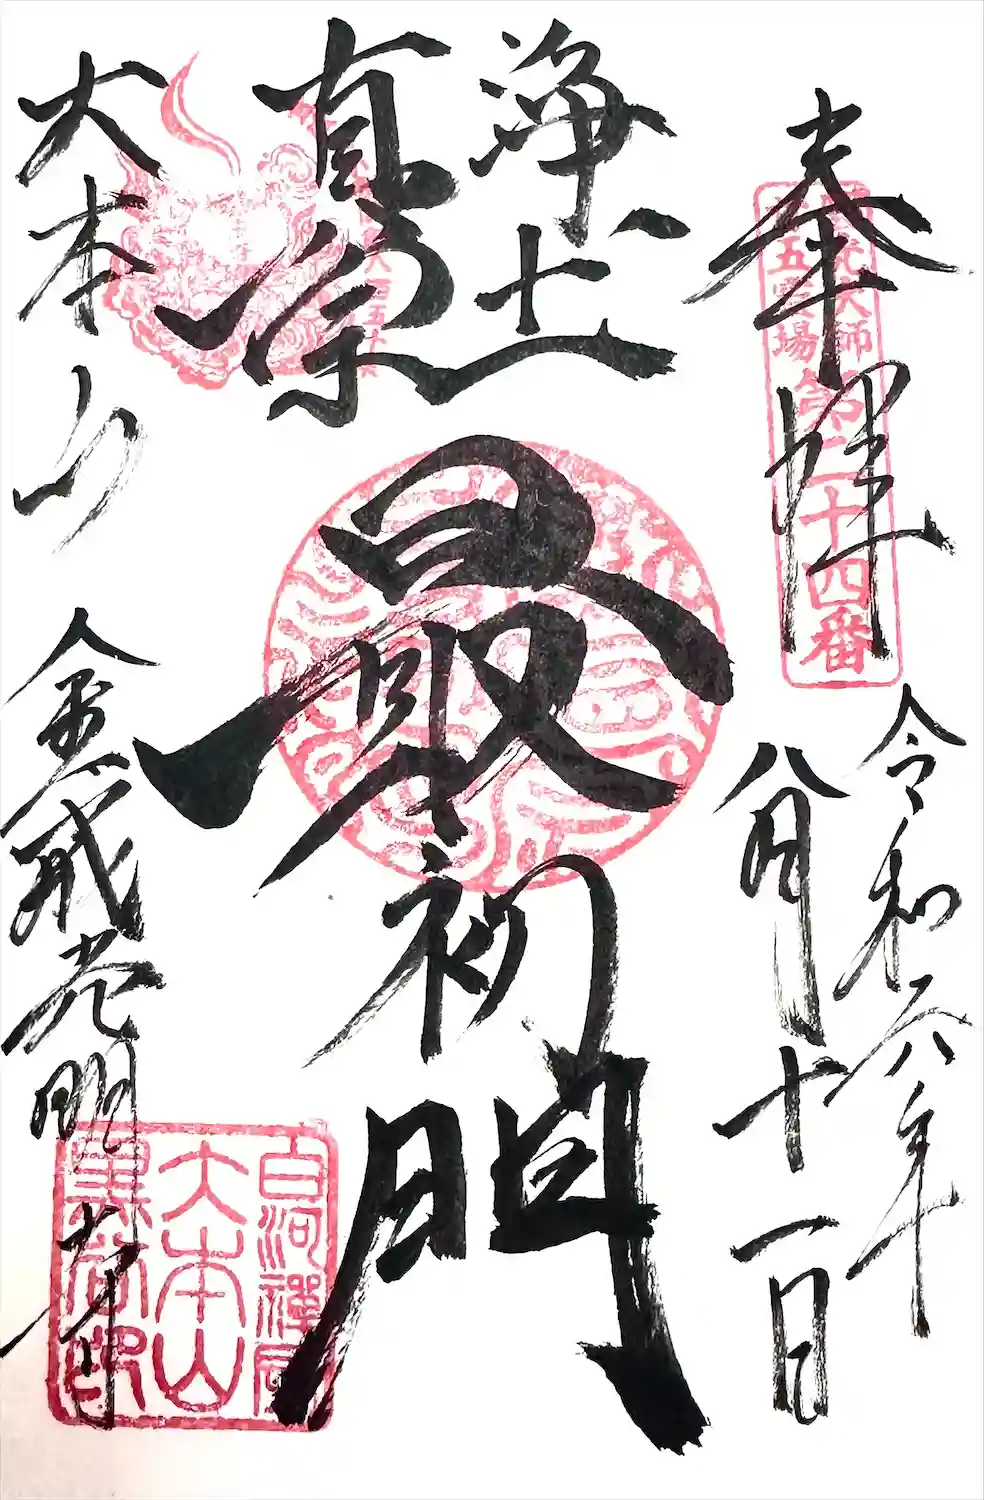 奉拝
圓光大師
二十五霊場
第二十四番
令和六年
八月十一日
浄土
真宗
最初門
大本山
金戒光明寺
白河禅房
大本山
黒谷印